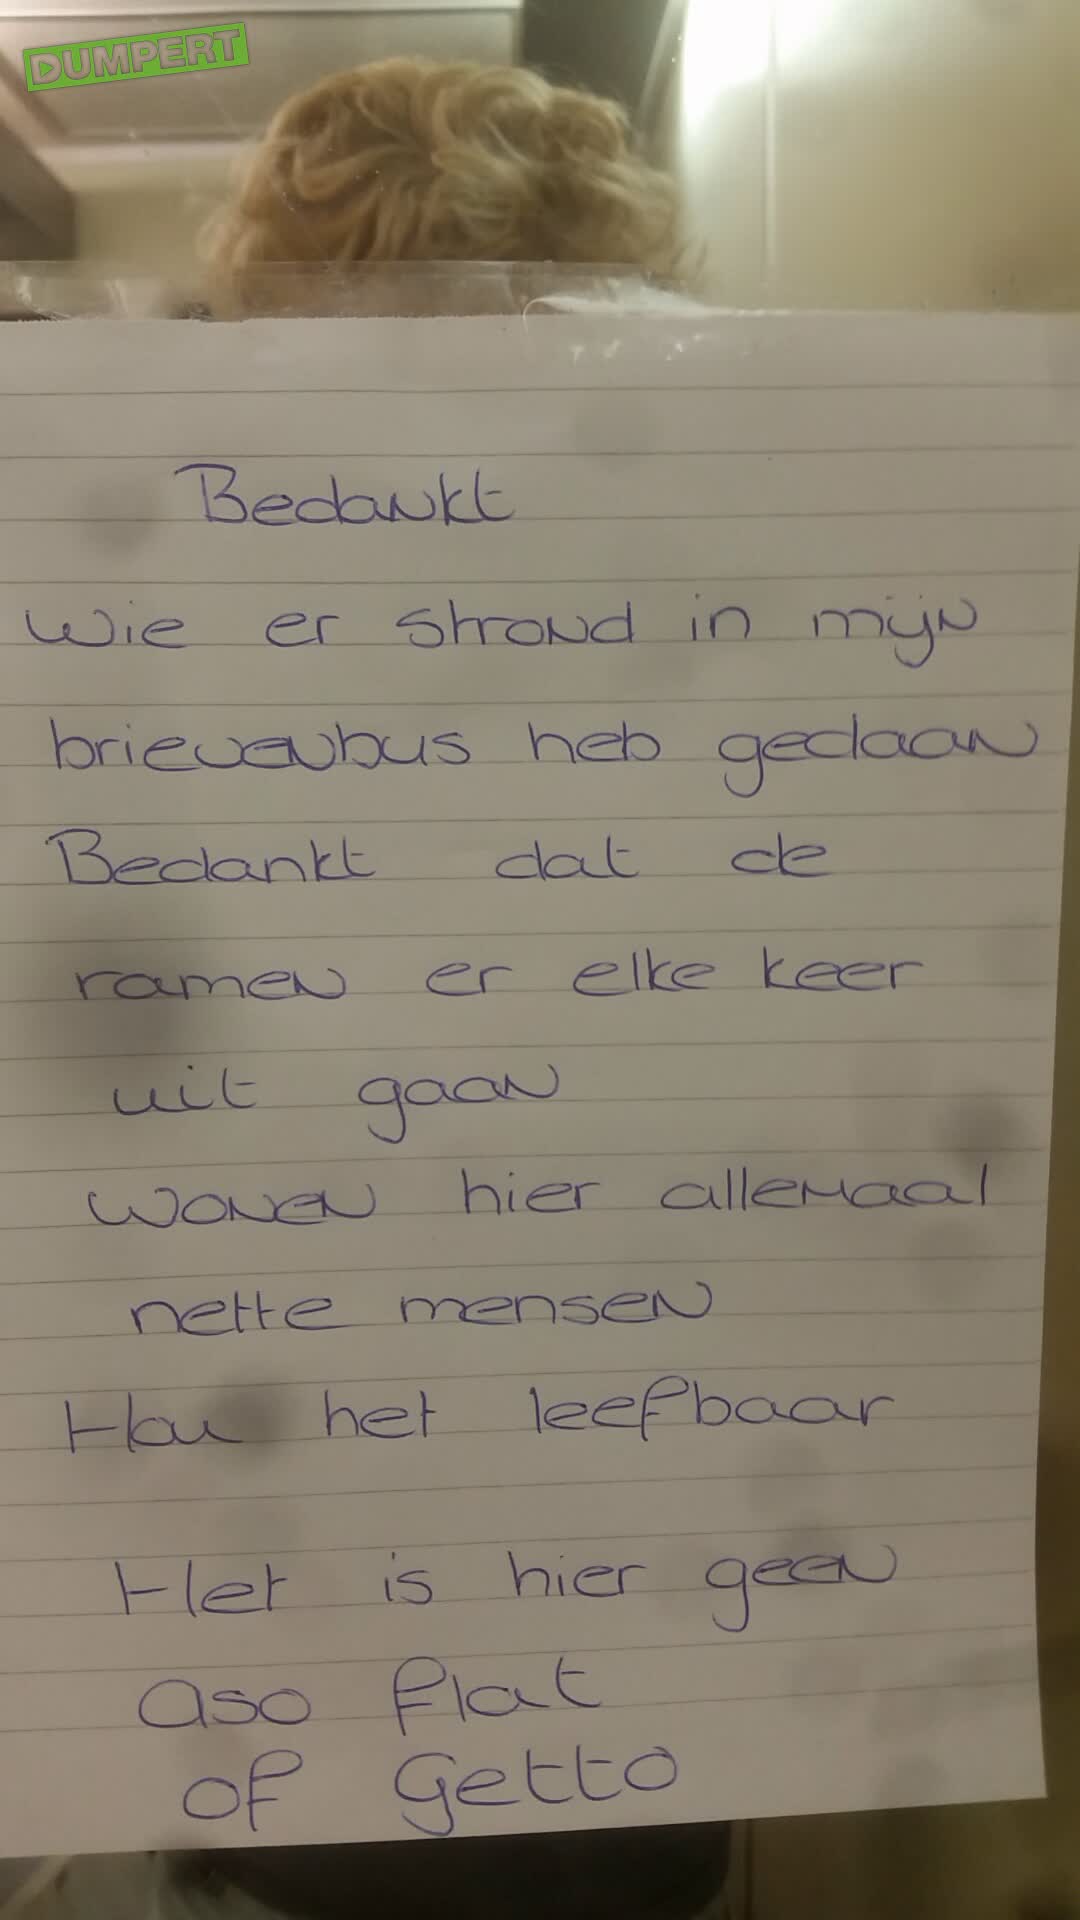 DUMPERT
Bedankt
Wie er strond in mijn
brievenbus heb gedaan
Bedankt dat de
ramen er elke keer
uit gaan
wonen hier allemaal
nette mensen
Hou het leefbaar
Het is hier geen
aso flat
of Getto